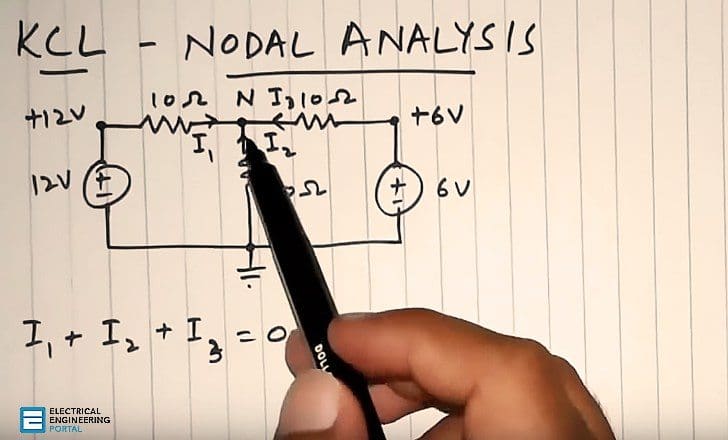 KCL - NODAL ANALYSIS
10Ω N I3 10Ω
+12V +6V
I1 I2
12V Ω 6V
I1 + I2 + I3 = 0
DOLL
ELECTRICAL
ENGINEERING
PORTAL